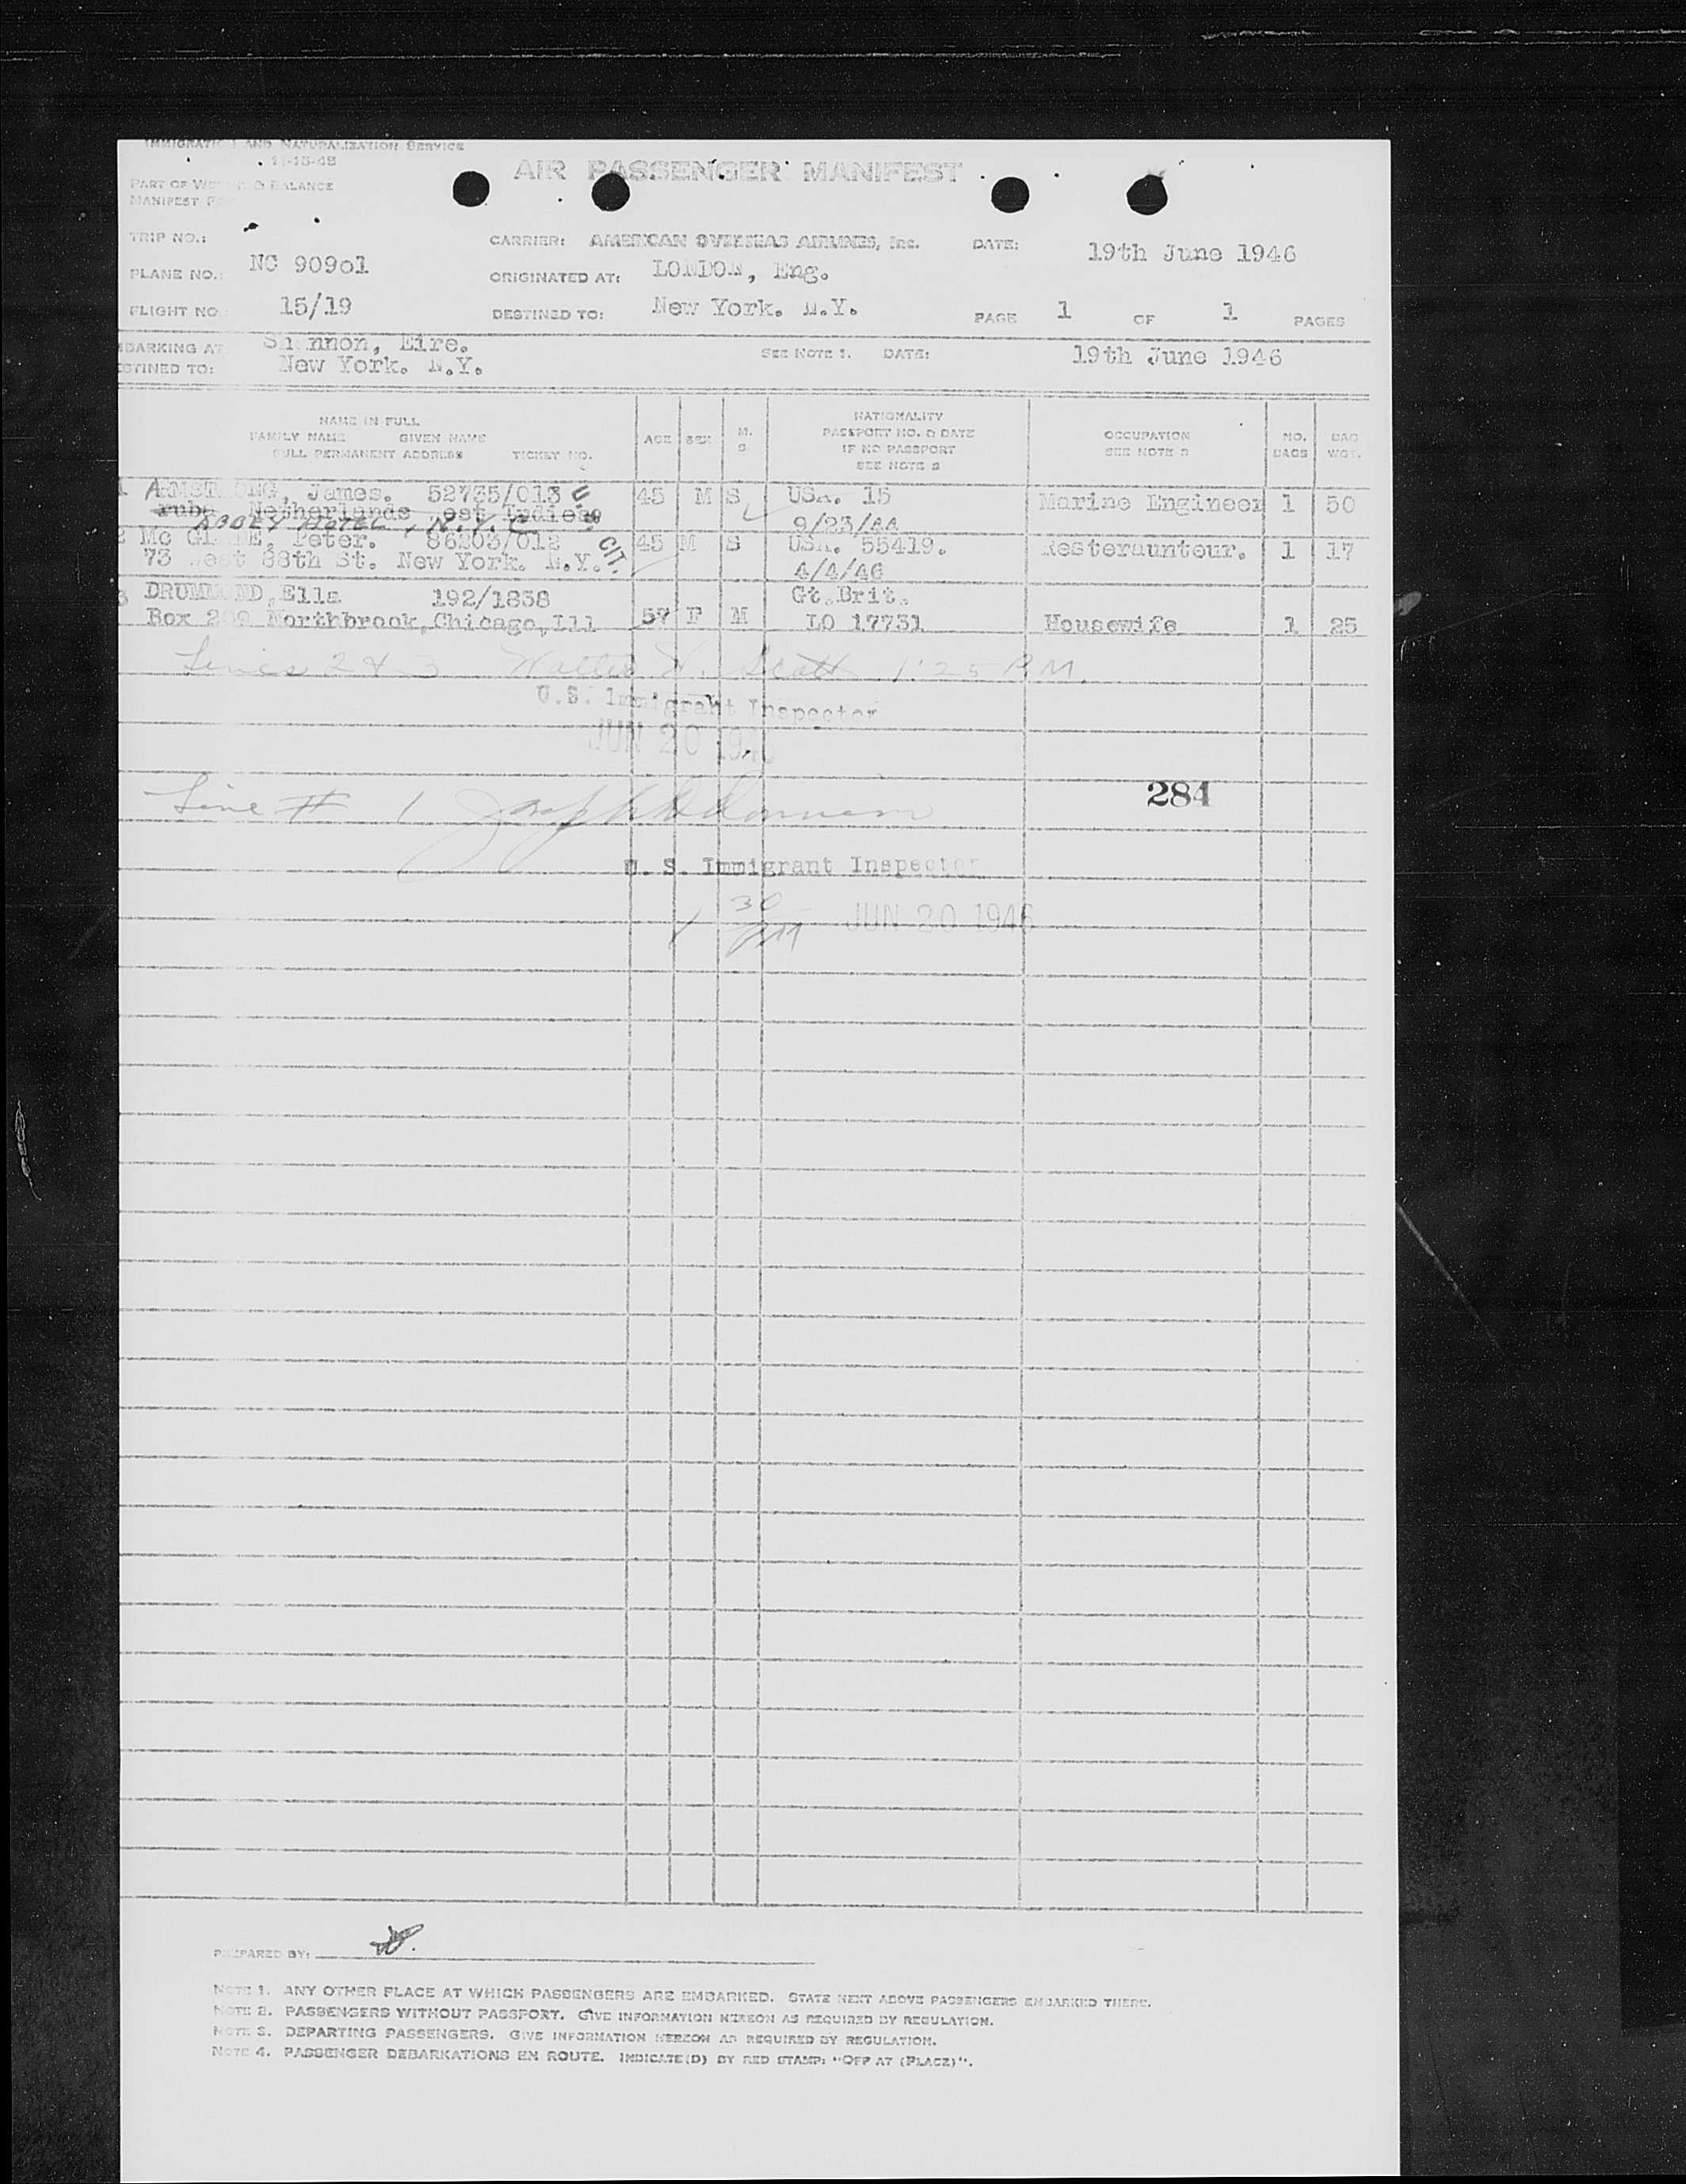 IMMIGRATION AND NATURALIZATION SERVICE
11-15-45
PART OF WEIGHT & BALANCE
MANIFEST
AIR PASSENGER MANIFEST
TRIP NO.:
CARRIER: AMERICAN OVERSEAS AIRLINES, Inc. DATE: 19th June 1946
PLANE NO.: NC 909o1 ORIGINATED AT: LONDON, Eng.
FLIGHT NO. 15/19 DESTINED TO: New York. N.Y. PAGE 1 OF 1 PAGES
EMBARKING AT Shannon, Eire. SEE NOTE 1. DATE: 19th June 1946
DESTINED TO: New York. N.Y.
NAME IN FULL
FAMILY NAME GIVEN NAME
FULL PERMANENT ADDRESS TICKET NO.
AGE SEX M. S. NATIONALITY PASSPORT NO. & DATE IF NO PASSPORT SEE NOTE 2
OCCUPATION SEE NOTE 3 NO. BAGS BAG WGT.
1 ARMSTRONG, James. 52735/013 45 M S USA. 15 Marine Engineer 1 50
Netherlands est Indiese 9/23/44
ABBEY HOTEL, N.Y.C U.S. CIT.
2 Mc GLADE, Peter. 86203/012 45 M S USA. 55419. Resteraunteur. 1 17
73 West 88th St. New York. N.Y. 4/4/46
3 DRUMMOND, Ella 192/1838 Gt.Brit.
Box Northbrook, Chicago, Ill 57 F M LO 17731 Housewife 1 25
Lines 2 & 3 Walter W. Scott 1:25 P.M.
U.S. Immigrant Inspector
JUN 20 1946
284
Line # 1 Joseph
U. S. Immigrant Inspector
1 30 PM JUN 20 1946
PREPARED BY:
NOTE 1. ANY OTHER PLACE AT WHICH PASSENGERS ARE EMBARKED. STATE NEXT ABOVE PASSENGERS EMBARKED THERE.
NOTE 2. PASSENGERS WITHOUT PASSPORT. GIVE INFORMATION HEREON AS REQUIRED BY REGULATION.
NOTE 3. DEPARTING PASSENGERS. GIVE INFORMATION HEREON AS REQUIRED BY REGULATION.
NOTE 4. PASSENGER DEBARKATIONS EN ROUTE. INDICATE(D) BY RED STAMP: "OFF AT (PLACE)".